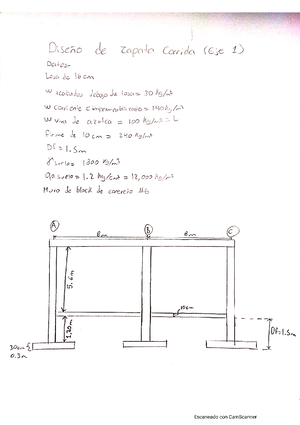 Diseño de Zapata Corrida (Eje 1)
Datos-
Losa de 16 cm
w acabados debajo de losa = 30 kg/m²
= 140 kg/m²
w viva de azotea = 100 kg/m² = L
Firme de 10 cm = 240 kg/m²
Df = 1.5m
γ suelo = 1300 kg/m³
qa suelo = 1.2 kg/cm² = 12,000 kg/m²
Muro de block de concreto #6
A
B
C
8m
8m
5.6m
10cm
1.20m
Df=1.5m
30cm
0.3m
Escaneado con CamScanner